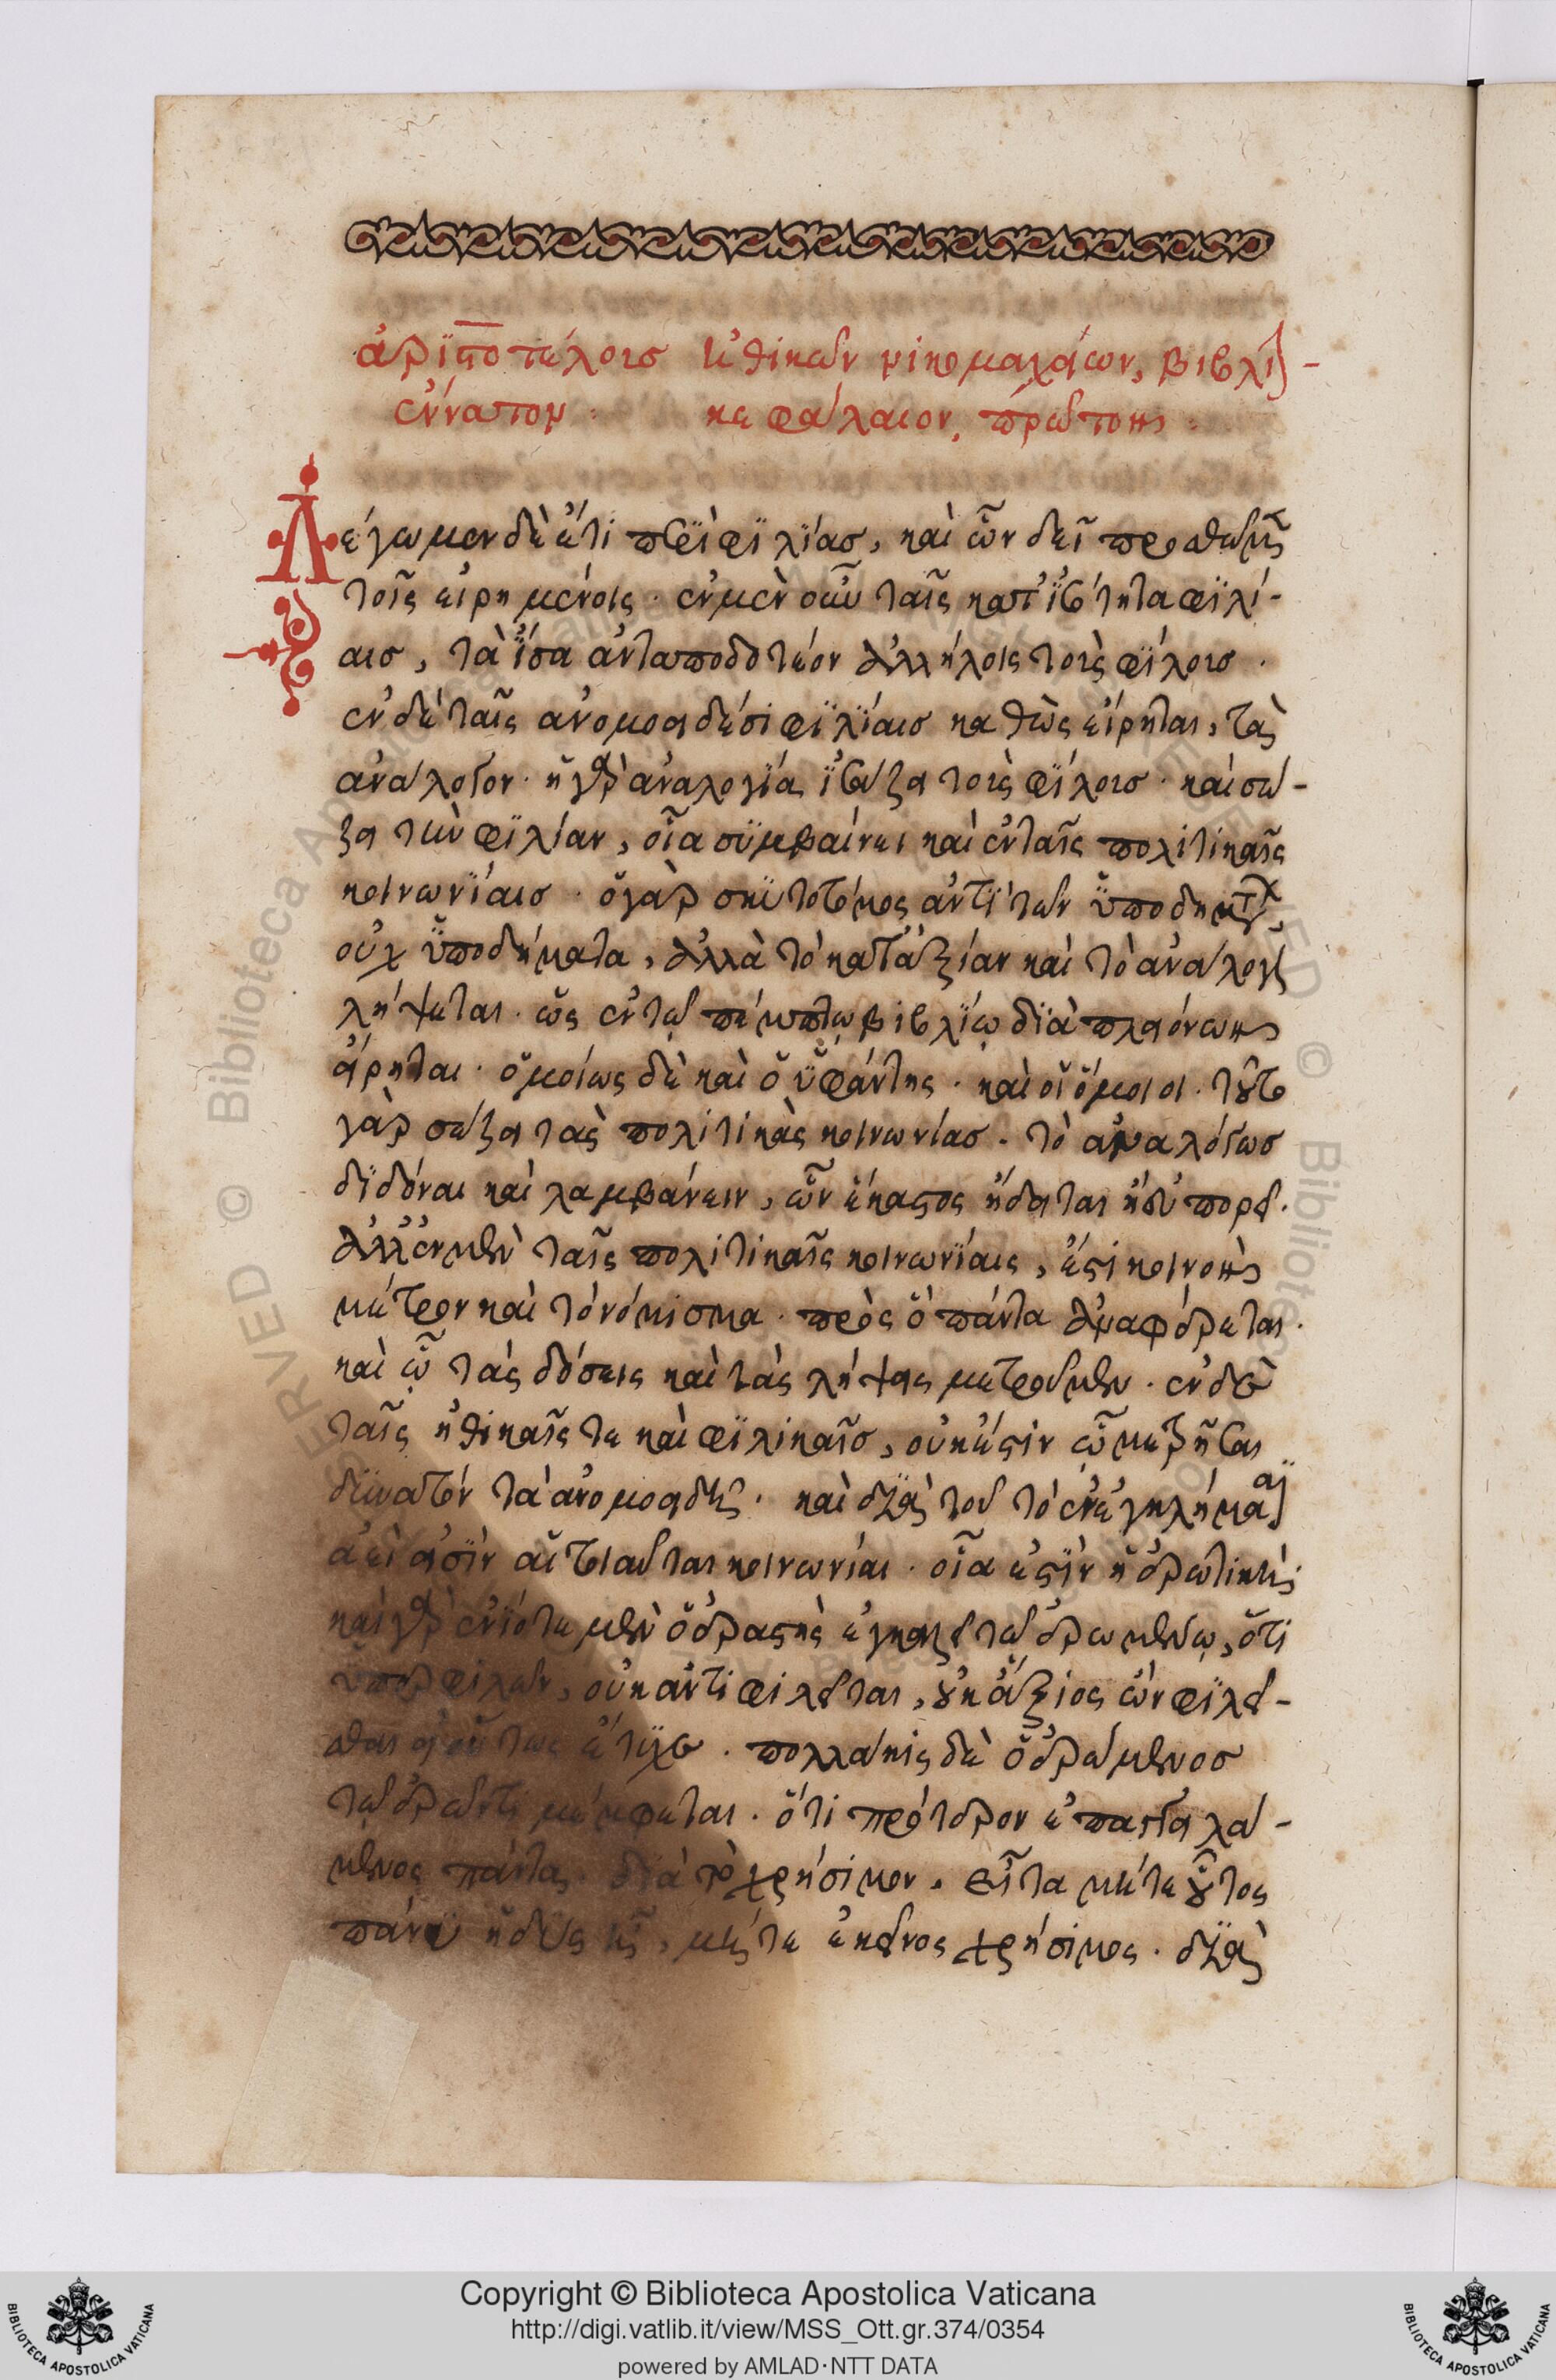 ἀριστοτέλους ἠθικῶν νικομαχείων, βιβλίον
ἔννατον. κεφάλαιον, πρῶτον.
Λέγωμεν δὲ ἔτι περὶ φιλίας, καὶ ὧν δεῖ προσθῶμεν
τοῖς εἰρημένοις. ἐν μὲν οὖν ταῖς κατ' ἰσότητα φιλί-
αις, τὰ ἴσα ἀνταποδοτέον ἀλλήλοις τοῖς φίλοις.
ἐν δὲ ταῖς ἀνομοειδέσι φιλίαις καθὼς εἴρηται, τὸ
ἀνάλογον. ἡ γὰρ ἀναλογία ἰσάζει τοῖς φίλοις. καὶ σώ-
ζει τὴν φιλίαν, οἷα συμβαίνει καὶ ἐν ταῖς πολιτικαῖς
κοινωνίαις. ὁ γὰρ σκυτοτόμος ἀντὶ τῶν ὑποδημάτων
οὐχ ὑποδήματα, ἀλλὰ τὸ κατ' ἀξίαν καὶ τὸ ἀνάλογον
λήψεται. ὡς ἐν τῷ πέμπτῳ βιβλίῳ διὰ πλειόνων
εἴρηται. ὁμοίως δὲ καὶ ὁ ὑφάντης. καὶ οἱ ὅμοιοι. τοῦτο
γὰρ σώζει τὰς πολιτικὰς κοινωνίας. τὸ ἀναλόγως
διδόναι καὶ λαμβάνειν, ὧν ἕκαστος ἥδεται ἢ εὐπορεῖ.
ἀλλ' ἐν μὲν ταῖς πολιτικαῖς κοινωνίαις, ἔστι κοινὸν
μέτρον καὶ τὸ νόμισμα. πρὸς ὃ πάντα ἀναφέρεται.
καὶ ᾧ τὰς δόσεις καὶ τὰς λήψεις μετροῦμεν. ἐν δὲ
ταῖς ἠθικαῖς τε καὶ φιλικαῖς, οὐκ ἔστιν ᾧ μετρῆσαι
δυνατὸν τὰ ἀνομοειδῆ. καὶ διὰ τοῦτο ἐν ἐγκλήμασι
ἀεὶ εἰσὶν αἱ τοιαῦται κοινωνίαι. οἷα ἐστὶν ἡ ἐρωτικὴ.
καὶ γὰρ ἐνίοτε μὲν ὁ ἐραστὴς ἐγκαλεῖ τῷ ἐρωμένῳ, ὅτι
ὑπερφιλῶν, οὐκ ἀντιφιλεῖται, οὐκ ἄξιος ὢν φιλεῖ-
σθαι εἰ οὕτως ἔτυχε. πολλάκις δὲ ὁ ἐρώμενος
τῷ ἐρῶντι μέμφεται. ὅτι πρότερον ἐπαγγειλά-
μενος πάντα. διὰ τὸ χρήσιμον. εἶτα μήτε οὗτος
πάνυ ἡδὺς ᾖ, μήτε ἐκεῖνος χρήσιμος. διὰ
Copyright © Biblioteca Apostolica Vaticana
http://digi.vatlib.it/view/MSS_Ott.gr.374/0354
powered by AMLAD·NTT DATA
BIBLIOTECA APOSTOLICA VATICANA
BIBLIOTECA APOSTOLICA VATICANA